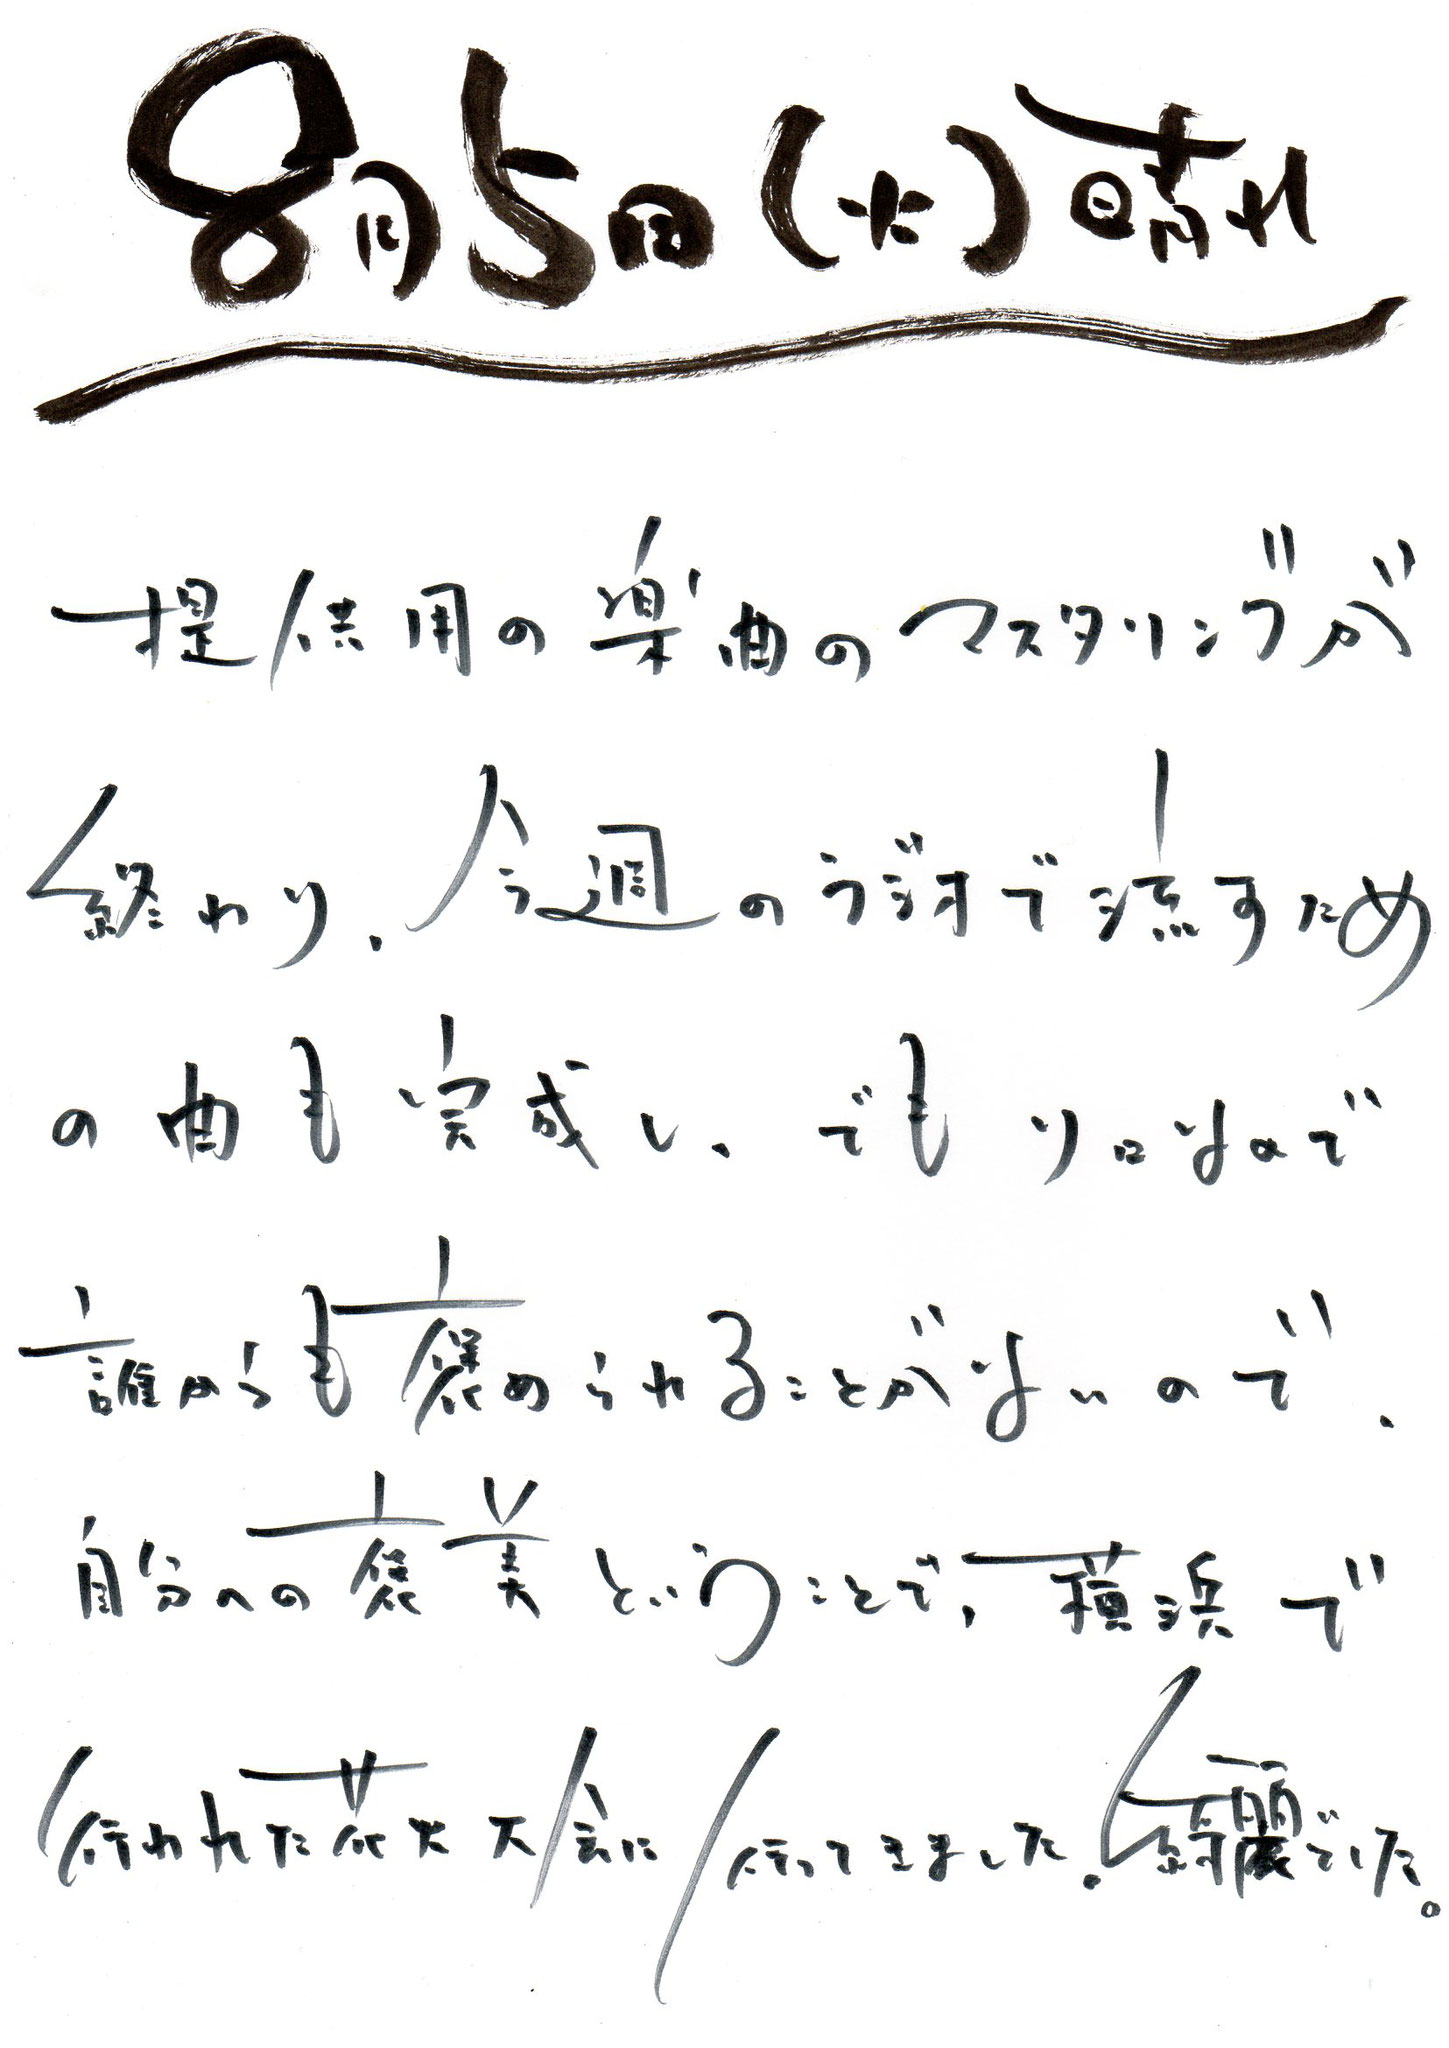 8月5日(火)晴れ
提供用の楽曲のマスタリングが
終わり、今週のラジオで流すため
の曲も完成し、でもソロなので
誰からも褒められることがないので、
自分への褒美ということで、横浜で
行われた花火大会に行ってきました。綺麗でした。